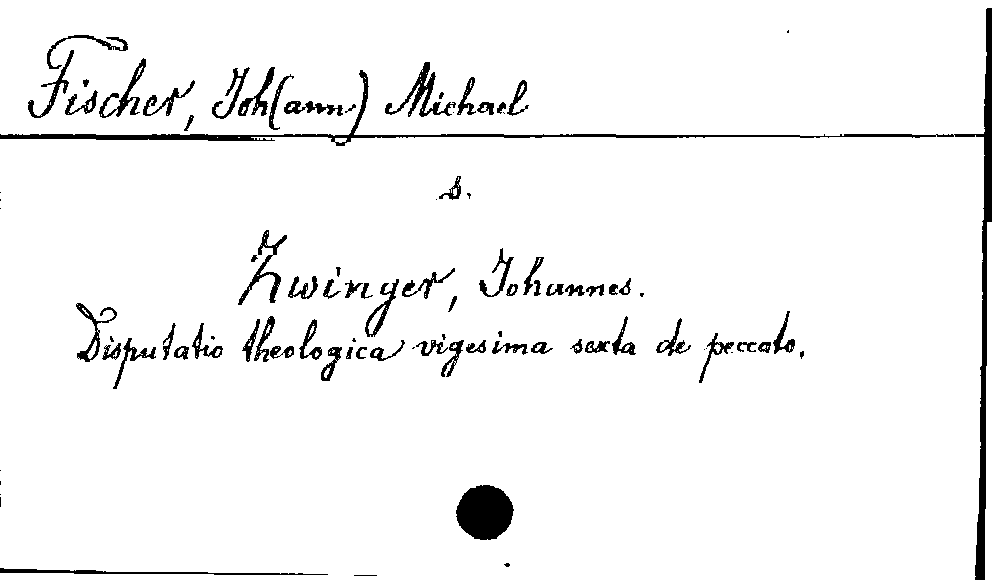 Fischer, Joh(ann) Michael
s.
Zwinger, Johannes.
Disputatio theologica vigesima sexta de peccato.